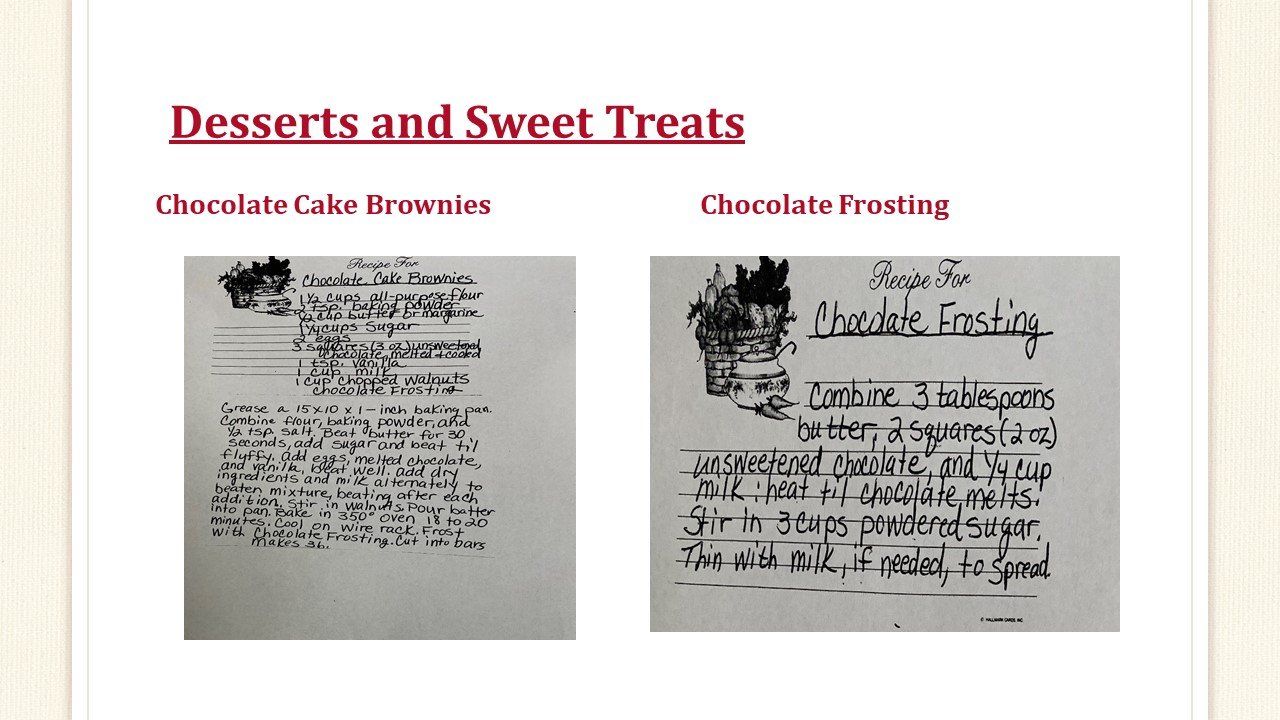 Desserts and Sweet Treats
Chocolate Cake Brownies
Recipe For
Chocolate Cake Brownies
1½ cups all-purpose flour
tsp baking powder
½ cup butter or margarine
1¼ cups Sugar
2 eggs
3 squares (3 oz) unsweetened
chocolate, melted + cooled
1 tsp. vanilla
1 cup milk
1 cup chopped walnuts
Chocolate Frosting
Grease a 15x10x1-inch baking pan.
Combine flour, baking powder, and
½ tsp. salt. Beat butter for 30
seconds, add sugar and beat til
fluffy. add eggs, melted chocolate,
and vanilla, beat well. add dry
ingredients and milk alternately to
beaten mixture, beating after each
addition. Stir in walnuts. Pour batter
into pan. Bake in 350° oven 18 to 20
minutes. Cool on wire rack. Frost
with Chocolate Frosting. Cut into bars
Makes 36.
Chocolate Frosting
Recipe For
Chocolate Frosting
Combine 3 tablespoons
butter, 2 squares (2 oz)
unsweetened chocolate, and ¼ cup
milk; heat til chocolate melts.
Stir in 3 cups powdered sugar.
Thin with milk, if needed, to spread.
© HALLMARK CARDS, INC.